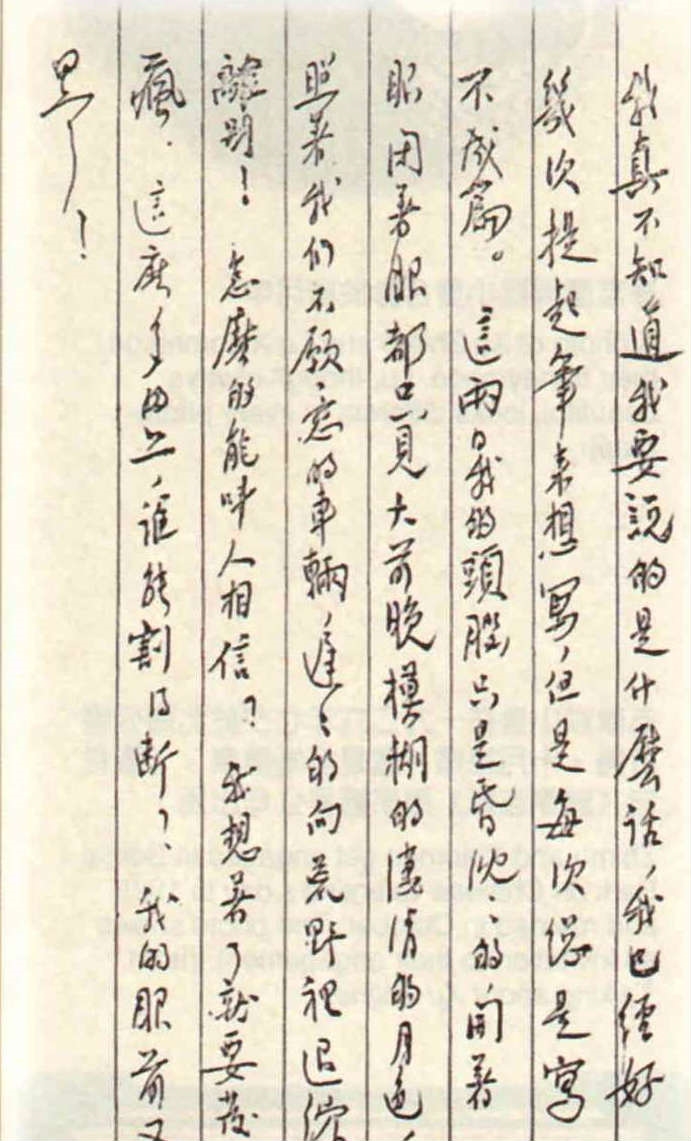 我真不知道我要說的是什麼話，我已經好
幾次提起筆來想寫，但是每次總是寫
不成篇。這兩日我的頭腦只是昏沈沈的，開著
眼閉着眼都只見大前晚模糊的淒清的月色，
照着我們不願意的車輛，遲遲的向荒野裡退縮
離別！怎麼的能叫人相信？我想着了就要發
瘋．這麼多的絲，誰能割得斷？我的眼前又
黑了！